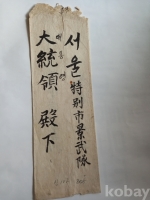 서울特別市景武隊
大統領 殿下
대통령
kobay